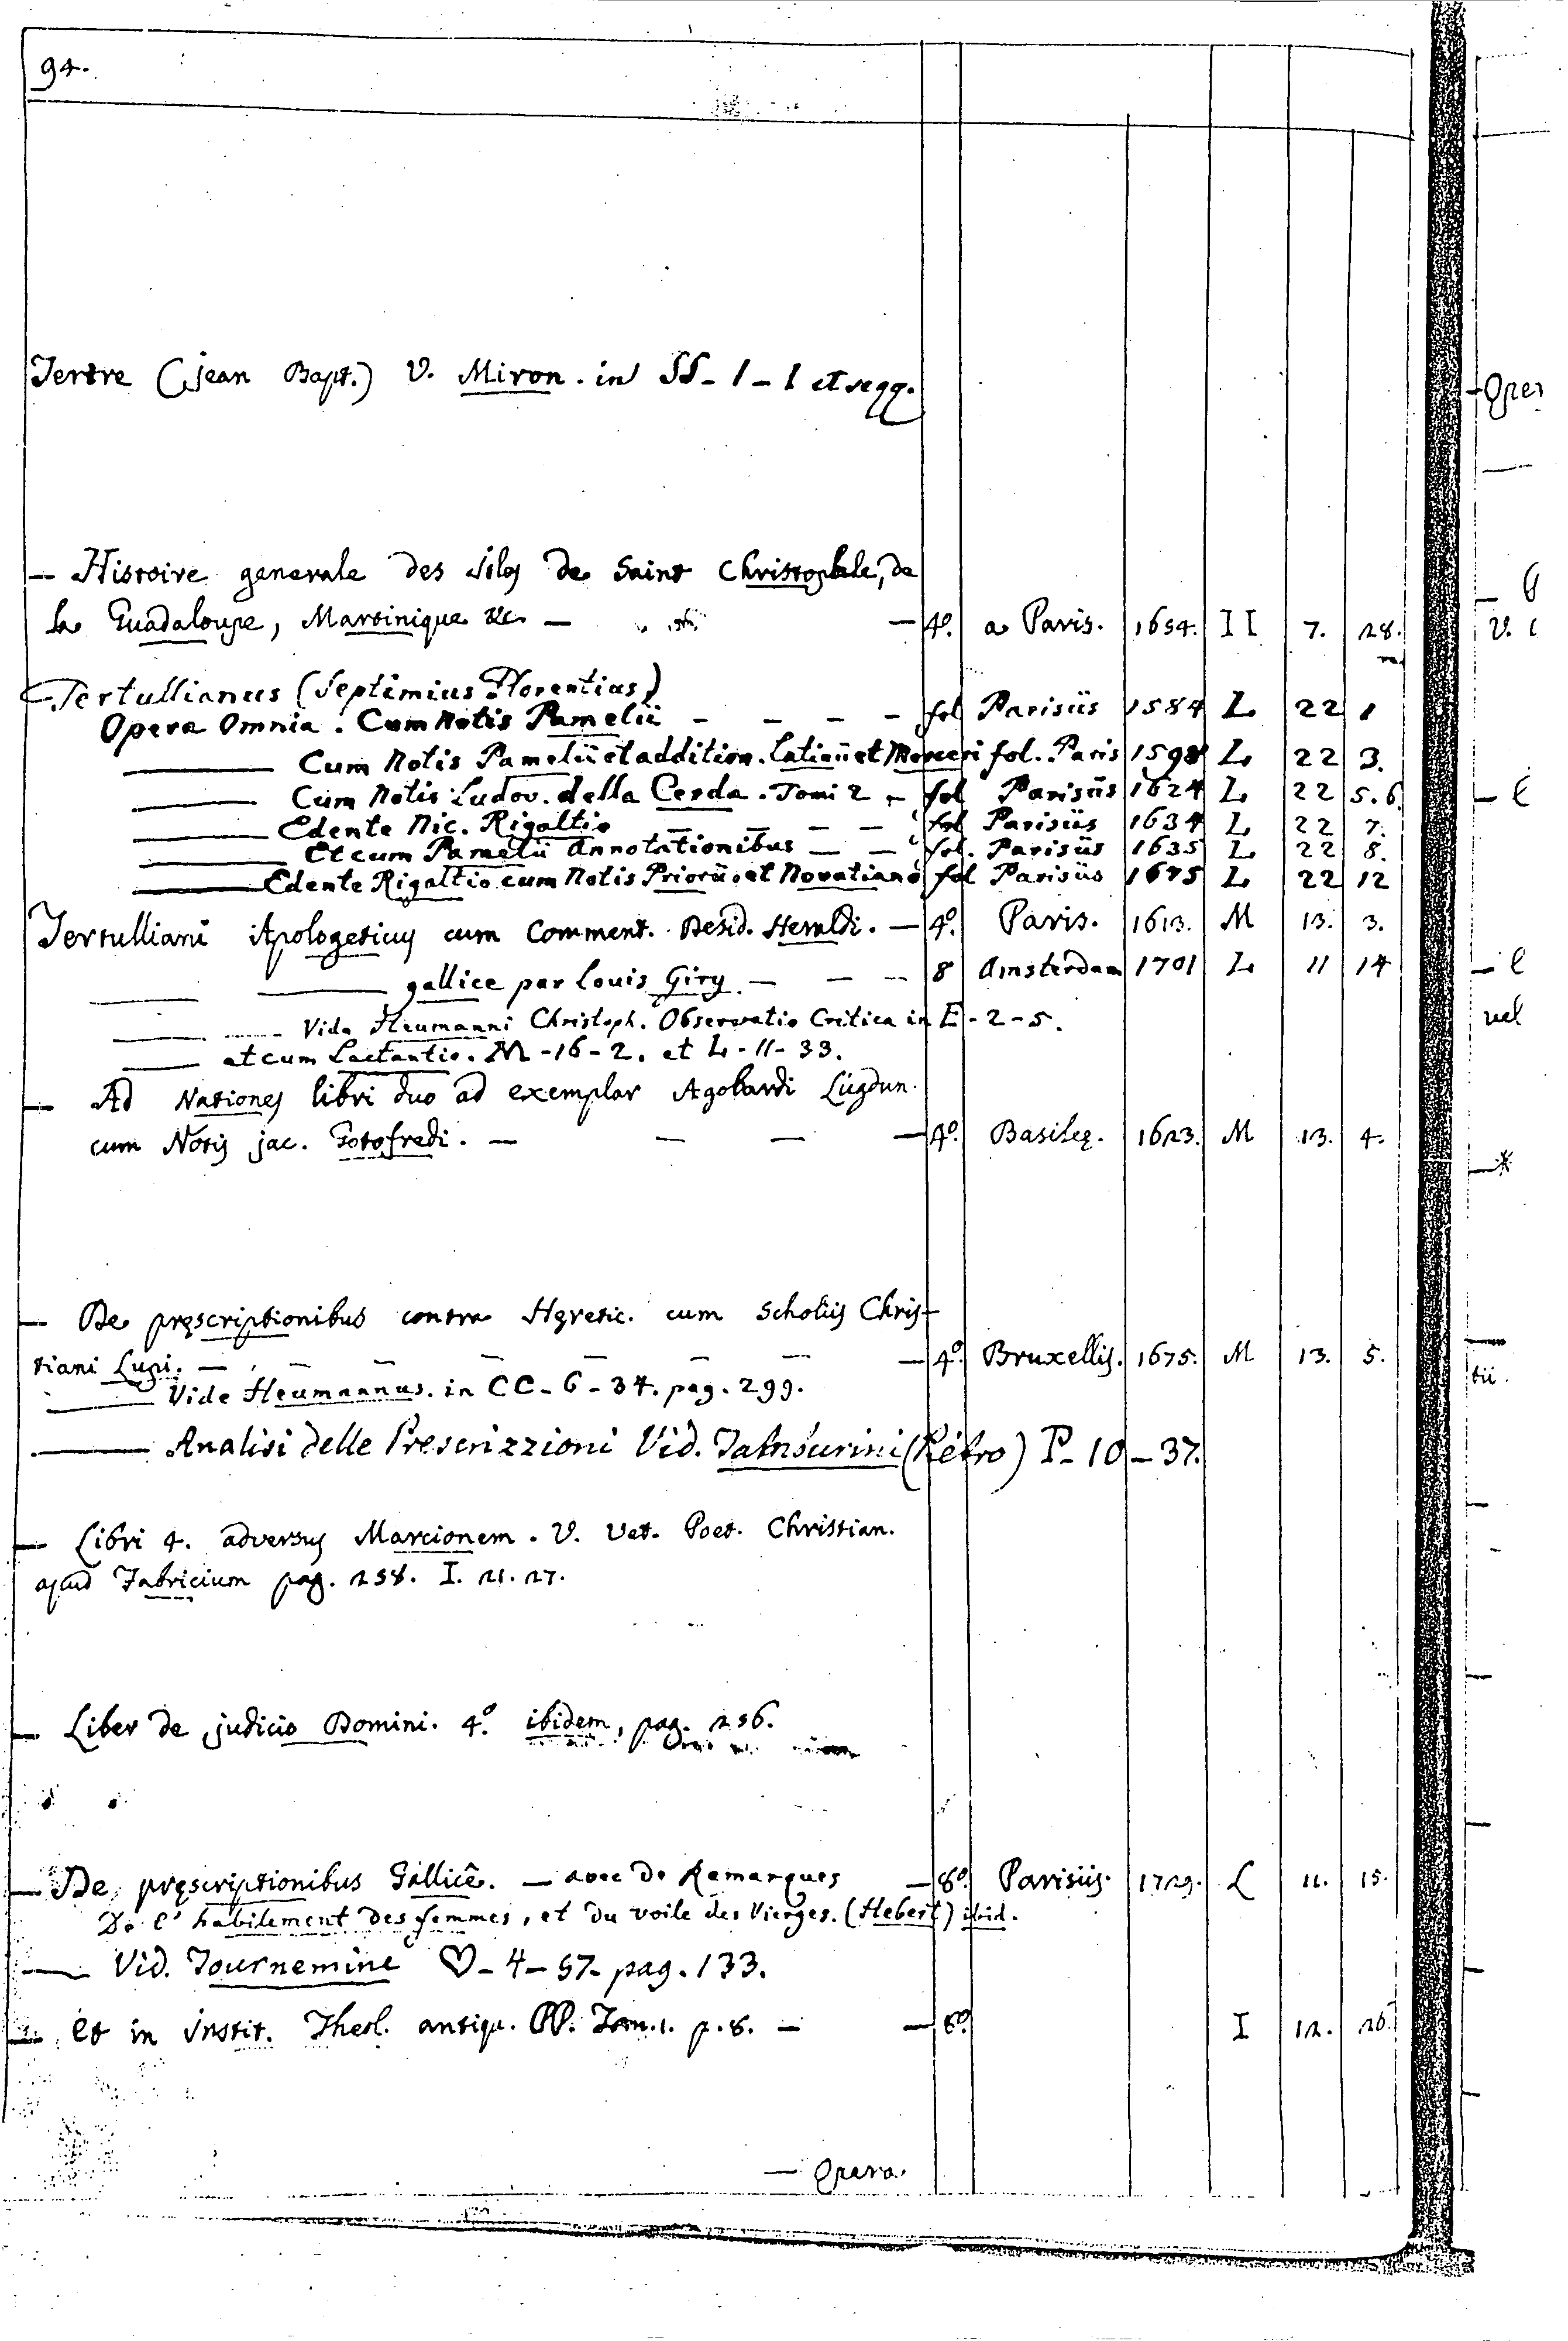 94.
Tertre (Jean Bapt.) V. Miron. in SS - 1 - 1 et seqq.
— Histoire generale des Isles de Saint Christophle, de
la Guadaloupe, Martinique &c. — — 4º. a Paris. 1654. II 7. 28.
Tertullianus (Septimius Florentius)
Opera Omnia. Cum Notis Pamelii — — — — fol Parisiis 1584 L 22 1
——— Cum Notis Pamelii et addition. Latinii et Merceri fol. Paris 1598 L 22 3.
——— Cum Notis Ludov. della Cerda. Tomi 2 — fol Parisiis 1624 L 22 5. 6.
——— Edente Nic. Rigaltio — — — — fol Parisiis 1634 L 22 7.
——— Et cum Pamelii Annotationibus — — fol. Parisiis 1635 L 22 8.
——— Edente Rigaltio cum Notis Priorii, et Novatiano fol Parisiis 1675 L 22 12
Tertulliani Apologeticus cum Comment. Desid. Heraldi. — 4º. Paris. 1613. M 13. 3.
——— ——— gallice par Louis Giry. — — — 8 Amsterdam 1701 L 11 14
——— ——— Vide Heumanni Christoph. Observatio Critica in E - 2 - 5.
——— et cum Lactantio. M - 16 - 2. et L - 11 - 33.
— Ad Nationes libri duo ad exemplar Agobardi Lugdun.
cum Notis jac. Gotofredi. — — — — 4º. Basileę. 1623. M 13. 4.
— De pręscriptionibus contra Hęretic. cum Scholiis Chris-
tiani Lupi. — — — — — — — — 4º. Bruxellis. 1675. M 13. 5.
——— Vide Heumannus. in CC - 6 - 34. pag. 299.
——— Analisi delle Prescrizzioni Vid. Tamburini (Pietro) P - 10 - 37.
— Libri 4. adversus Marcionem. V. Vet. Poet. Christian.
apud Fabricium pag. 258. I. 21. 27.
— Liber de judicio Domini. 4º. ibidem, pag. 256.
— De pręscriptionibus Gallicê. — avec de Remarques — 8º. Parisiis. 1729. L 11. 15.
De l' habilement des femmes, et du voile des Vierges. (Hebert) ibid.
—— Vid. Tournemine ♡ - 4 - 57 - pag. 133.
— et in Instit. Theol. antiqu. PP. Tom. 1. p. 8. — — 8º. I 12. 26.
— Opera.